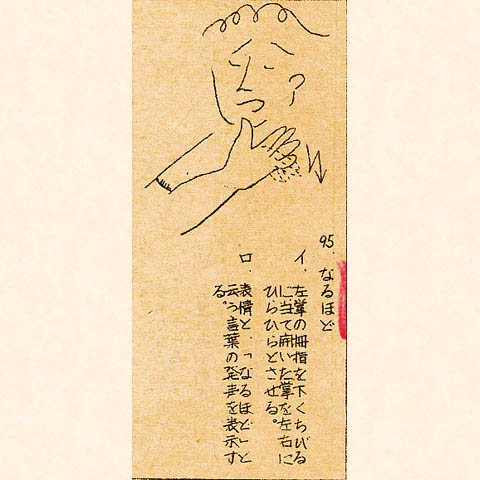 95. なるほど
イ、左掌の母指を下くちびる
に当て開いた掌を左右に
ひらひらとさせる。
ロ、表情と、「なるほど」と
云う言葉の発声を表示す
る。